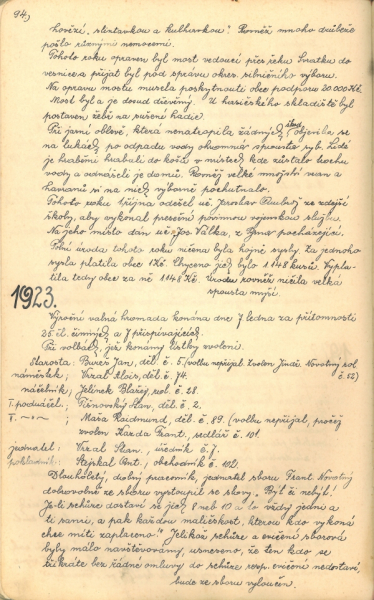 94,
hovězí, slintavkou a kulhavkou. Rovněž mnoho drůbeže
pošlo různými nemocemi.
Tohoto roku opraven byl most vedoucí přes řeku Svratku do
vesnice a přijat byl pod správu okres. silničního výboru.
Na opravu mostu musela poskytnouti obec podporu 20.000 Kč.
Most byl a je dosud dřevěný. Z hasičského skladiště byl
postaven žebř na sušení hadic.
Při jarní oblevě, která nenatropila žádných škod, objevilo se
na lukách po odpadu vody ohromné spousty ryb. Lidé
je hraběmi hrabali do košů v místech kde zůstalo trochu
vody a odnášeli je domů. Rovněž velké množství vran a
havranů si na nich výborně pochutnalo.
Tohoto roku října odešel uč. Jaroslav ze zdejší
školy, aby vykonal presenční povinnou vojenskou službu.
Na jeho místo dán uč. Jos. Válka, z Brna pocházející.
Polní úroda tohoto roku ničena byla hojně sysly. Za jednoho
sysla platila obec 1 Kč. Chyceno jich bylo 1.148 kusů. Vypla-
tila tedy obec za ně 1148 Kč. Úrodu rovněž ničila velká
spousta myší.
1923.
Výroční valná hromada konána dne 7. ledna za přítomnosti
35 čl. činných a 7 přispívajících.
Při volbách, jež konány lístky zvoleni:
Starosta: Bureš Jan, děl. č. 5 (volbu nepřijal. Zvolen Jindř. Novotný rol.
č. 52)
náměstek: Vrzal Alois, děl. č. 74.
náčelník: Jelínek Blažej, rol. č. 28.
I. podnáčel.: Pišnovský Stan., děl. č. 2.
II. -"- : Máša Rajdmund, děl. č. 89. (volbu nepřijal, pročež
zvolen Karda Frant., sedlář č. 101.
jednatel: Vrzal Stan., úředník č. 7.
pokladník: Stejskal Ant., obchodník č. 102.
Dlouholetý, dobrý pracovník, jednatel sboru Frant. Novotný
dobrovolně ze sboru vystoupil se slovy: "Být či nebýt!
Jeli schůze dostaví se jich 8 neb 10 a to vždy jedni a
ti samí, a pak každou maličkost, kterou kdo vykoná
chce míti zaplaceno." Jelikož schůze a cvičení sborová
byly málo navštěvovány, usneseno, že ten kdo se
třikráte bez řádné omluvy do schůze resp. cvičení nedostaví,
bude ze sboru vyloučen.